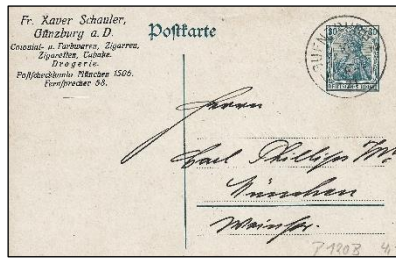 Fr. Xaver Schauler,
Günzburg a. D.
Colonial- u. Farbwaren, Zigarren,
Zigaretten, Tabake.
Drogerie.
Postscheckkonto München 1506.
Fernsprecher 58.
Postkarte
30 30
DEUTSCHES REICH
Herrn
Carl Phillips
München
P 120 B